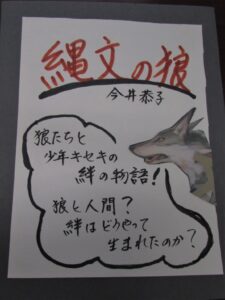 縄文の狼
今井恭子
狼たちと
少年キセキの
絆の物語！
狼と人間？
絆はどうやって
生まれたのか？